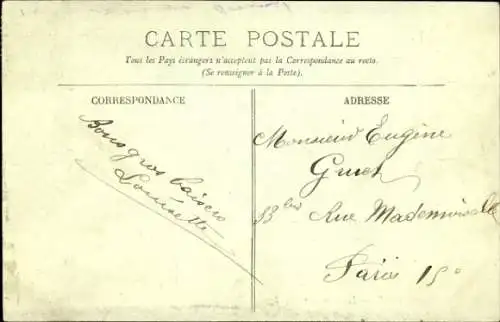 CARTE POSTALE
Tous les Pays étrangers n'acceptent pas la Correspondance au recto.
(Se renseigner à la Poste).
CORRESPONDANCE
Bons gros baisers
Louisette
ADRESSE
Monsieur Eugène
33 bis Rue Mademoiselle
Paris 15e